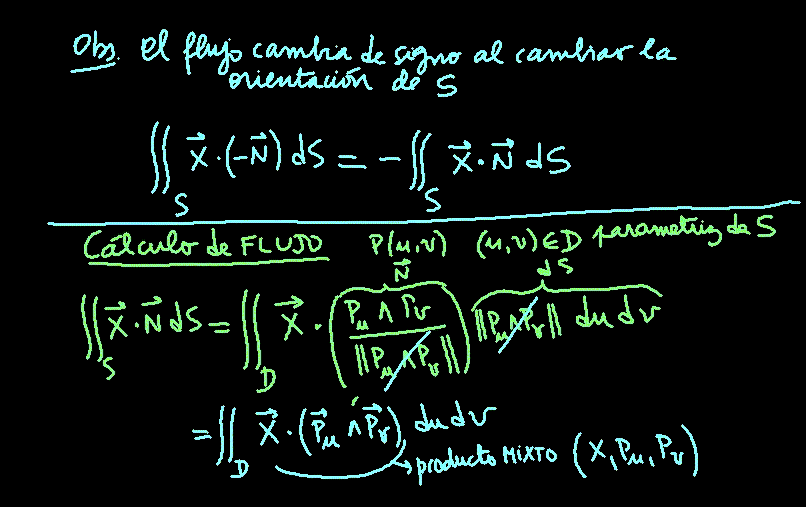 Obs. El flujo cambia de signo al cambiar la
orientación de S
∬_S X⃗·(-N⃗) dS = -∬_S X⃗·N⃗ dS
Cálculo de FLUJO P(u,v) (u,v)∈D parametriz de S
N⃗ dS
∬_S X⃗·N⃗ dS = ∬_D X⃗·(P_u ∧ P_v / ‖P_u ∧ P_v‖) ‖P_u ∧ P_v‖ du dv
= ∬_D X⃗·(P⃗_u ∧ P⃗_v) du dv
→ producto MIXTO (X, P_u, P_v)